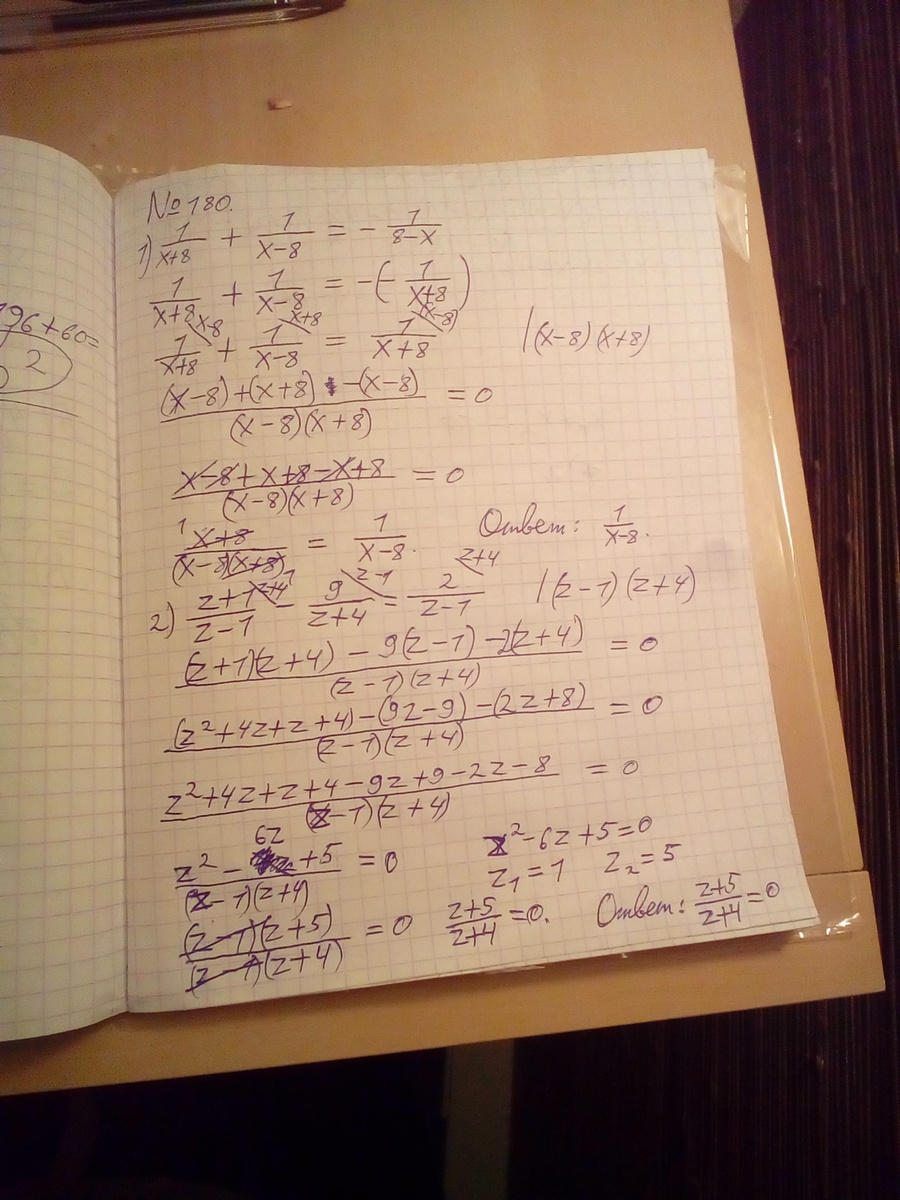 196+60=
2
№180.
1) 1/(x+8) + 1/(x-8) = - 1/(8-x)
1/(x+8) + 1/(x-8) = -(- 1/(x+8))
1/(x+8) x-8 + 1/(x-8) x+8 = 1/(x+8) (x-8) | (x-8)(x+8)
((x-8)+(x+8) -(x-8))/((x-8)(x+8)) = 0
(x-8+x+8-x+8)/((x-8)(x+8)) = 0
1 (x+8)/((x-8)(x+8)) = 1/(x-8). Ответ: 1/(x-8).
2) (z+1)/(z-1) z+4 - 9/(z+4) z-1 = 2/(z-1) z+4 | (z-1)(z+4)
((z+1)(z+4) - 9(z-1) -2(z+4))/((z-1)(z+4)) = 0
((z²+4z+z+4)-(9z-9)-(2z+8))/((z-1)(z+4)) = 0
(z²+4z+z+4-9z+9-2z-8)/((z-1)(z+4)) = 0
(z² - 6z +5)/((z-1)(z+4)) = 0 z²-6z+5=0
z₁=1 z₂=5
((z-1)(z+5))/((z-1)(z+4)) = 0 (z+5)/(z+4) =0. Ответ: (z+5)/(z+4) =0